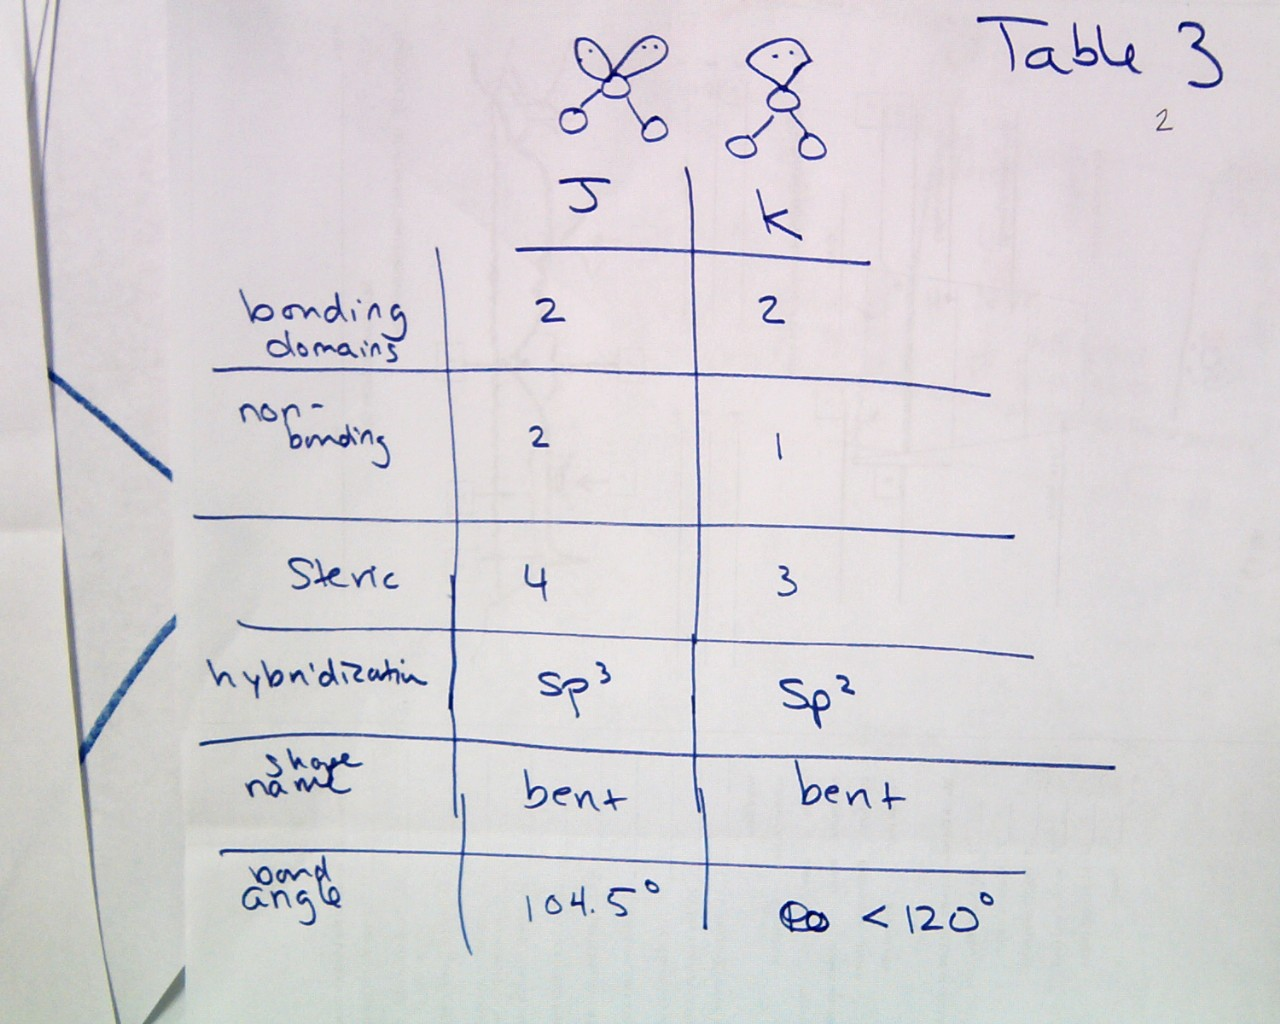 Table 3
2
J K
bonding domains 2 2
non-bonding 2 1
Steric 4 3
hybridization sp³ sp²
shape name bent bent
bond angle 104.5° < 120°